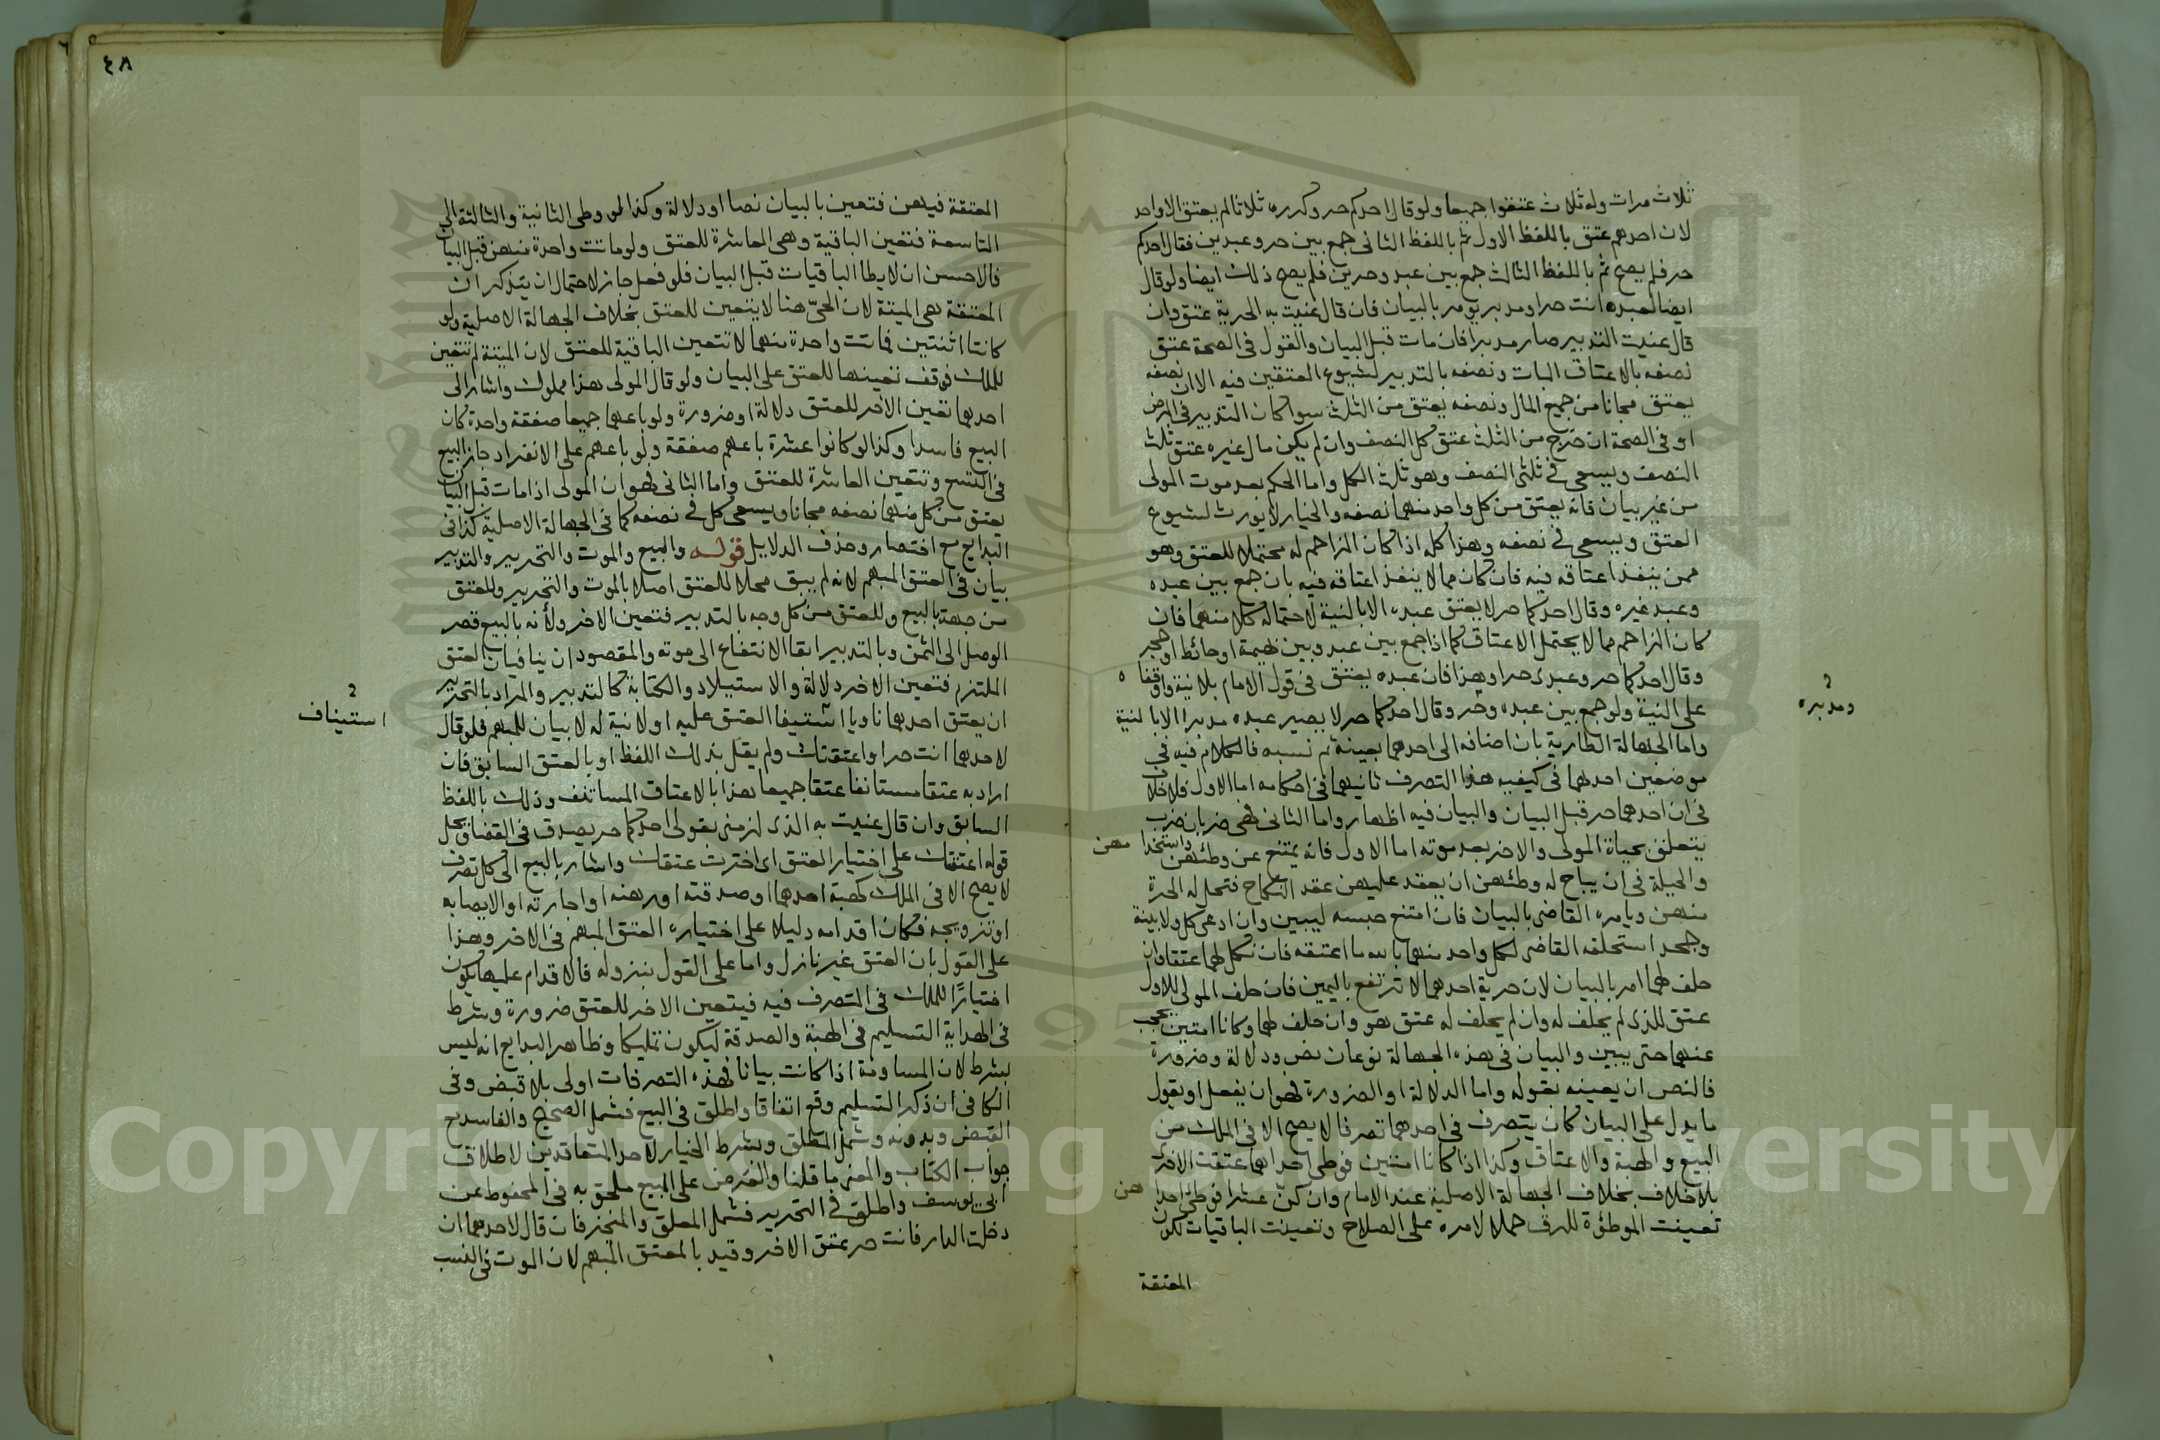 ثلاث مرات وله ثلاث عتقوا جميعا ولو قال احدكم حر وكرره ثلاثا لم يعتق الا واحد
لان احدهم عتق باللفظ الاول ثم باللفظ الثاني جمع بين حر وعبدين فقال احدكم
حر فلم يصح ثم باللفظ الثالث جمع بين عبد وحرين فلم يصح ذلك ايضا ولو قال
ايضا لعبده انت حر او مدبر يومر بالبيان فان قال عنيت به الحرية عتق وان
قال عنيت التدبير صار مدبرا فان مات قبل البيان والقول في الصحة عتق
نصفه بالاعتاق البات ونصفه بالتدبير لشيوع العتقين فيه الا ان نصفه
يعتق مجانا من جميع المال ونصفه يعتق من الثلث سوا كان التدبير في المرض
او في الصحة ان خرج من الثلث عتق كل النصف وان لم يكن مال غيره عتق ثلث
النصف ويسعى في ثلثي النصف وهو ثلث الكل واما الحكم بعد موت المولى
من غير بيان فانه يعتق من كل واحد منهما نصفه والخيار لا يورث لشيوع
العتق ويسعى في نصفه وهذا كله اذا كان المزاحم له محتملا للعتق وهو
ممن ينفذ اعتاقه فيه فان كان مما لا ينفذ اعتاقه فيه بان جمع بين عبده
وعبد غيره وقال احدكما حر لا يعتق عبده الا بالنية لاحتماله كلا منهما فان
كان المزاحم مما لا يحتمل الاعتاق كما اذا جمع بين عبد وبين بهيمة او حائط او حجر
وقال احدكما حر وعبدي حر او هذا فان عبده يعتق في قول الامام بلا نية واوقفاه
على النية ولو جمع بين عبده وحر وقال احدكما حر لا يصير عبده مدبرا الا بالنية
ومدبره
واما الجهالة الطارية بان اضافه الى احدهما بعينه ثم نسيه فالكلام فيه في
موضعين احدهما في كيفيه هذا التصرف ثانيهما في احكامه اما الاول فلا خلاف
في ان احدهما حر قبل البيان والبيان فيه اظهار واما الثاني فهي ضربان ضرب
يتعلق بحياة المولى والاخر بعد موته اما الاول فانه يمتنع عن وطئهن واستخدامهن
والحيلة في ان يباح له وطئهن ان يعقد عليهن عقد النكاح فتحل له الحرة
منهن ويامره القاضي بالبيان فان امتنع حبسه ليبين وان ادعى كل ولا بينة
وجحد استحلفه القاضي لكل واحد منهما بالله ما اعتقه فان نكل لهما عتقا وان
حلف لهما امر بالبيان لان حرية احدهما لا ترتفع باليمين فان حلف المولى للاول
عتق للذي لم يحلف له وان لم يحلف له عتق هو وان حلف لهما وكانا امتين يحجب
عنهما حتى يبين والبيان في هذه الجهالة نوعان نص ودلالة وضرورة
فالنص ان يعينه بقوله واما الدلالة او الضرورة فهو ان يفعل او يقول
ما يدل على البيان كان يتصرف في احدهما تصرفا لا يصح الا في الملك من
البيع والهبة والاعتاق وكذا اذا كانا امتين فوطئ احداهما عتقت الاخرى
بلا خلاف بخلاف الجهالة الاصلية عند الامام وان كن عشرا فوطئ احداهن
تعينت الموطؤة للرق حملا لامره على الصلاح وتعينت الباقيات لكون
المعتقة
٤٨
المعتقة فيهن فتعين بالبيان نصا او دلالة وكذا لو وطى الثانية والثالثة الى
التاسعة فتعين الباقية وهي العاشرة للعتق ولو ماتت واحدة منهن قبل البيان
فالاحسن ان لا يطا الباقيات قبل البيان فلو فعل جاز لاحتمال ان يتذكر ان
المعتقة هي الميتة لان الحي هنا لا يتعين للعتق بخلاف الجهالة الاصلية ولو
كانتا اثنتين فماتت واحدة منهما لا تتعين الباقية للعتق لان الميتة لم تتعين
للملك فوقف تعينها للعتق على البيان ولو قال المولى هذا مملوك واشار الى
احدهما تعين الاخر للعتق دلالة او ضرورة ولو باعهما جميعا صفقة واحدة كان
البيع فاسدا وكذا لو كانوا عشرة باعهم صفقة ولو باعهم على الانفراد جاز البيع
في التسع وتتعين العاشرة للعتق واما الثاني فهو ان المولى اذا مات قبل البيان
يعتق من كل منهما نصفه مجانا ويسعى كل في نصفه كما في الجهالة الاصلية كذا في
البدايع مع اختصار وحذف الدلايل قوله والبيع والموت والتحرير والتدبير
بيان في العتق المبهم لانه لم يبق محلا للعتق اصلا بالموت والتحرير وللعتق
من جهته بالبيع وللعتق من كل وجه بالتدبير فتعين الاخر ولأنه بالبيع قصر
الوصل الى الثمن وبالتدبير ابقا الانتفاع الى موته والمقصودان ينافيان العتق
الملتزم فتعين الاخر دلالة والاستيلاد والكتابة كالتدبير والمراد بالتحرير
ان يعتق احدهما ناويا استيفا العتق عليه او لا نية له لا بيان للمبهم فلو قال
استيناف
لاحدهما انت حر او اعتقتك ولم يقل بذلك اللفظ او بالعتق السابق فان
اراد به عتقا مستانفا عتقا جميعا هذا بالاعتاق المستانف وذلك باللفظ
السابق وان قال عنيت به الذي لزمني بقولي احدكما حر يصدق في القضا ويحمل
قوله اعتقتك على اختيار العتق اي اخترت عتقك واشار بالبيع الى كل تصرف
لا يصح الا في الملك كهبة احدهما او صدقته او رهنه او اجارته او الايصا به
او تزويجه فكان اقدامه دليلا على اختياره العتق المبهم في الاخر وهذا
على القول بان العتق غير نازل واما على القول بنزوله فالاقدام عليها يكون
اختيارًا للملك في التصرف فيه فيتعين الاخر للعتق ضرورة وشرط
في الهداية التسليم في الهبة والصدقة ليكون تمليكا وظاهر البدايع انه ليس
بشرط لان المساومة اذا كانت بيانا فهذه التصرفات اولى بلا قبض وفي
الكافي ان ذكر التسليم وقع اتفاقا واطلق في البيع فشمل الصحيح والفاسد مع
القبض وبدونه وشمل المطلق وبشرط الخيار لاحد المتعاقدين لاطلاق
جواب الكتاب والمعنى ما قلنا والعرض على البيع ملحق به في المحفوظ عن
ابي يوسف واطلق في التحرير فشمل المعلق والمنجز فان قال لاحدهما ان
دخلت الدار فانت حر عتق الاخر وقيد بالعتق المبهم لان الموت في النسب
Copyright © King Saud University